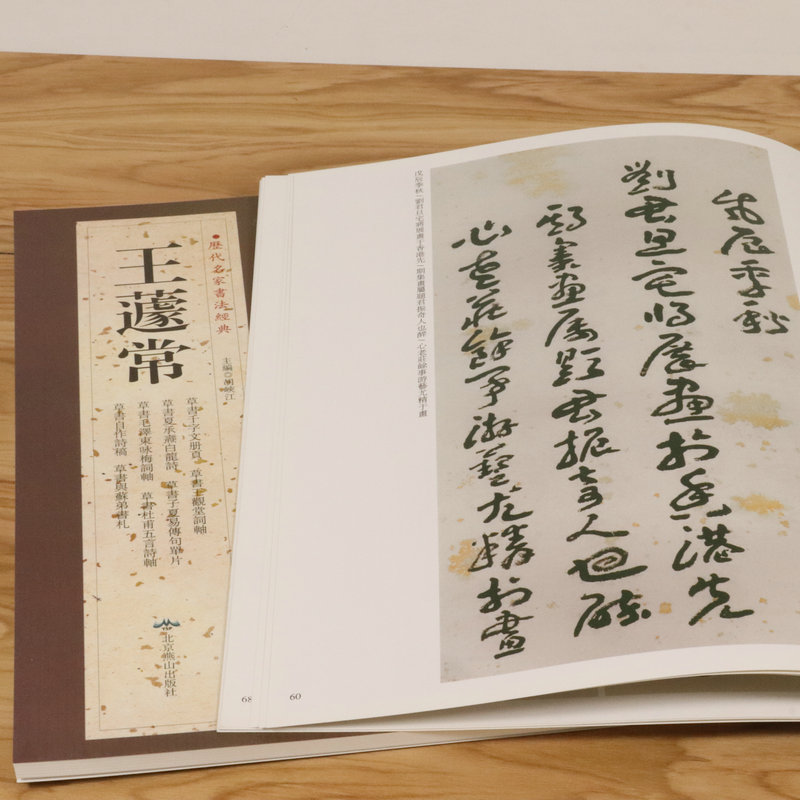 歷代名家書法經典
王蘧常
主編◎胡峽江
草書千字文册頁 草書王觀堂詞軸
草書夏承燾白龍詩 草書子夏易傳句單片
草書毛澤東咏梅詞軸 草書杜甫五言詩軸
草書自作詩稿 草書與蘇弟書札
北京燕山出版社
68
60
戊辰季秋 劉君旦宅將展畫于香港先 期集畫屬題君振奇人也醉 心老莊餘事游藝尤精于畫
戊辰季秋
劉君旦宅將展畫於香港先
期集畫屬題君振奇人也醉
心老莊餘事游藝尤精於畫